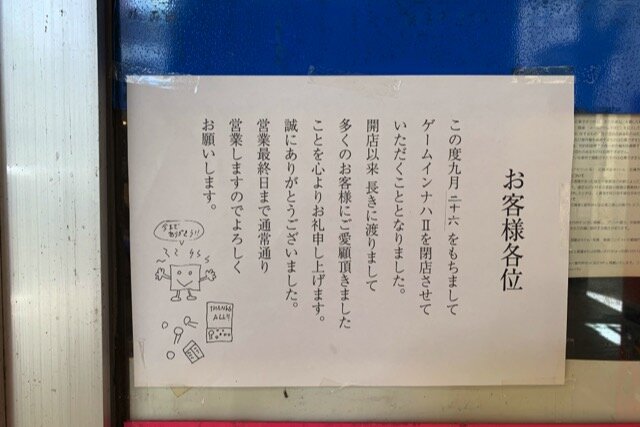 お客様各位
この度九月二十六をもちまして
ゲームインナハⅡを閉店させて
いただくこととなりました。
開店以来 長きに渡りまして
多くのお客様にご愛顧頂きました
ことを心よりお礼申し上げます。
誠にありがとうございました。
営業最終日まで通常通り
営業しますのでよろしく
お願いします。
今まで
ありがとう!!
THANKS
ALL!!